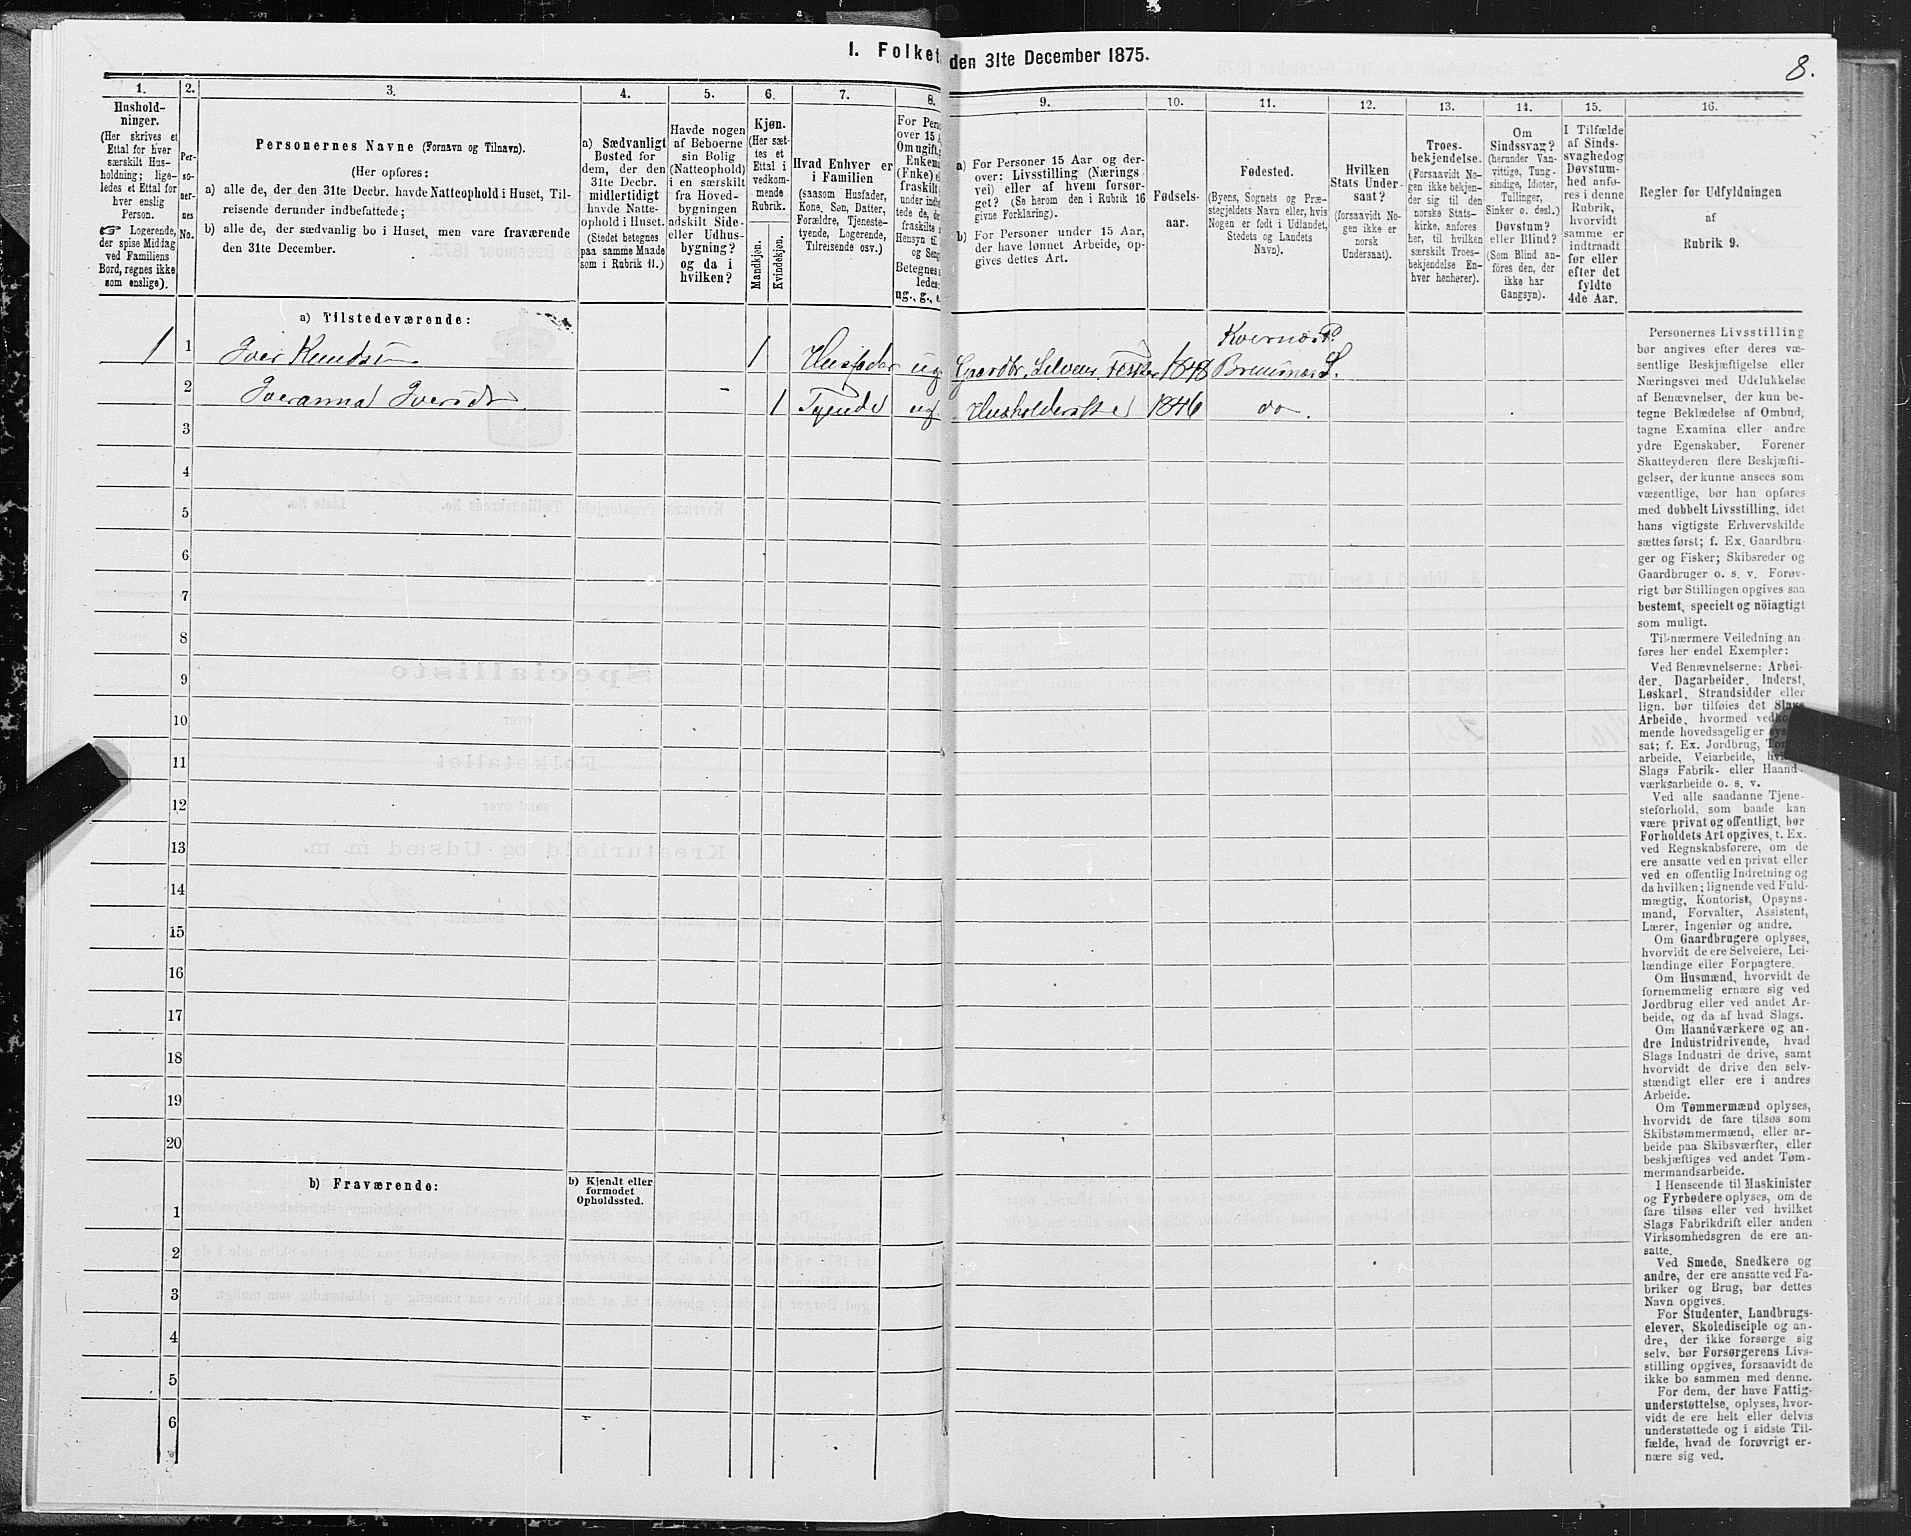 I. Folket
den 31te December 1875.
8.
1.
2.
3.
4.
5.
6.
7.
8.
9.
10.
11.
12.
13.
14.
15.
16.
Hushold-
ninger.
(Her skrives et
Ettal for hver
særskilt Hus-
holdning; lige-
ledes et Ettal for
hver enslig
Person.
☞ Logerende,
der spise Middag
ved Familiens
Bord, regnes ikke
som enslige).
Per-
so-
ner-
nes
No.
Personernes Navne (Fornavn og Tilnavn).
(Her opføres:
a) alle de, der den 31te Decbr. havde Natteophold i Huset, Til-
reisende derunder indbefattede;
b) alle de, der sædvanlig bo i Huset, men vare fraværende
den 31te December.
a) Sædvanligt
Bosted for
dem, der den
31te Decbr.
midlertidigt
havde Natte-
ophold i Huset.
(Stedet betegnes
paa samme Maade
som i Rubrik 11.)
Havde nogen
af Beboerne
sin Bolig
(Natteophold)
i en særskilt
fra Hoved-
bygningen
adskilt Side-
eller Udhus-
bygning?
og da i
hvilken?
Kjøn.
(Her sæt-
tes et
Ettal i
vedkom-
mende
Rubrik.
Mandkjøn.
Kvindekjøn.
Hvad Enhver er
i Familien
(saasom Husfader,
Kone, Søn, Datter,
Forældre, Tjeneste-
tyende, Logerende,
Tilreisende osv.)
For Pers
over 15 A
Om ugift,
Enkema
(Enke) e
fraskilt
under indb
tede de, de
fraskilte
Hensyn til
og Seng
Betegnes
ledes:
ug., g., e.
a) For Personer 15 Aar og der-
over: Livsstilling (Nærings
vei) eller af hvem forsør-
get? (Se herom den i Rubrik 16
givne Forklaring).
b) For Personer under 15 Aar,
der have lønnet Arbeide, op-
gives dettes Art.
Fødsels-
aar.
Fødested.
(Byens, Sognets og Præ-
stegjeldets Navn eller, hvis
Nogen er født i Udlandet,
Stedets og Landets
Navn).
Hvilken
Stats Under-
saat?
(forsaavidt No-
gen ikke er
norsk
Undersaat).
Troes-
bekjendelse.
(Forsaavidt No-
gen ikke bekjen-
der sig til den
norske Stats-
kirke, anføres
her, til hvilken
særskilt Troes-
bekjendelse En-
hver henhører).
Om
Sindssvag?
(herunder Van-
vittige, Tung-
sindige, Idioter,
Tullinger,
Sinker o. desl.)
Døvstum?
eller Blind?
(Som Blind an-
føres den, der
ikke har
Gangsyn).
I Tilfælde
af Sinds-
svaghed og
Døvstum-
hed anfø-
res i denne
Rubrik,
hvorvidt
samme er
indtraadt
før eller
efter det
fyldte
4de Aar.
Regler for Udfyldningen
af
Rubrik 9.
a) Tilstedeværende:
Kvernæs P.
1 1 Iver Knudsen 1 Husfader ug. Gaardbr. Selveier, Fisker 1848 Bremsnæs S.
2 Iveranna Iversdr - 1 Tyende ug. Husholderske 1846 do.
3
4
5
6
7
8
9
10
11
12
13
14
15
16
17
18
19
20
b) Fraværende:
b) Kjendt eller
formodet
Opholdssted.
1
2
3
4
5
6
Personernes Livsstilling
bør angives efter deres væ-
sentlige Beskjæftigelse eller
Næringsvei med Udelukkelse
af Benævnelser, der kun be-
tegne Beklædelse af Ombud,
tagne Examina eller andre
ydre Egenskaber. Forener
Skatteyderen flere Beskjæfti-
gelser, der kunne ansees som
væsentlige, bør han opføres
med dobbelt Livsstilling, idet
hans vigtigste Erhvervskilde
sættes først; f. Ex. Gaardbru-
ger og Fisker; Skibsreder og
Gaardbruger o. s. v. Forøv-
rigt bør Stillingen opgives saa
bestemt, specielt og nöiagtigt
som muligt.
Til nærmere Veiledning an-
føres her endel Exempler:
Ved Benævnelserne: Arbei-
der, Dagarbeider, Inderst,
Løskarl, Strandsidder eller
lign. bør tilføies det Slags
Arbeide, hvormed vedkom-
mende hovedsagelig er syssel-
sat; f. Ex. Jordbrug, Tom
arbeide, Veiarbeide, hvilket
Slags Fabrik- eller Haand-
værksarbeide o. s. v.
Ved alle saadanne Tjene-
steforhold, som baade kan
være privat og offentligt, bør
Forholdets Art opgives, t. Ex.
ved Regnskabsførere, om de
ere ansatte ved en privat eller
ved en offentlig Indretning og
da hvilken; lignende ved Fuld-
mægtig, Kontorist, Opsyns-
mand, Forvalter, Assistent,
Lærer, Ingeniør og andre.
Om Gaardbrugere oplyses,
hvorvidt de ere Selveiere, Lei-
lændinge eller Forpagtere.
Om Husmænd, hvorvidt de
fornemmelig ernære sig ved
Jordbrug eller ved andet Ar-
beide, og da af hvad Slags.
Om Haandværkere og an-
dre Industridrivende, hvad
Slags Industri de drive, samt
hvorvidt de drive den selv-
stændigt eller ere i andres
Arbeide.
Om Tømmermænd oplyses,
hvorvidt de fare tilsøs som
Skibstømmermænd, eller ar-
beide paa Skibsværfter, eller
beskjæftiges ved andet Tøm-
mermandsarbeide.
I Henseende til Maskinister
og Fyrbødere oplyses, om de
fare tilsøs eller ved hvilket
Slags Fabrikdrift eller anden
Virksomhedsgren de ere an-
satte.
Ved Smede, Snedkere og
andre, der ere ansatte ved Fa-
briker og Brug, bør dettes
Navn opgives.
For Studenter, Landbrugs-
elever, Skoledisciple og an-
dre, der ikke forsørge sig
selv, bør Forsørgerens Livs-
stilling opgives, forsaavidt de
ikke bo sammen med denne.
For dem, der have Fattig-
understøttelse, oplyses, hvor-
vidt de ere helt eller delvis
understøttede og i sidste Til-
fælde, hvad de forøvrigt er-
nære sig ved.